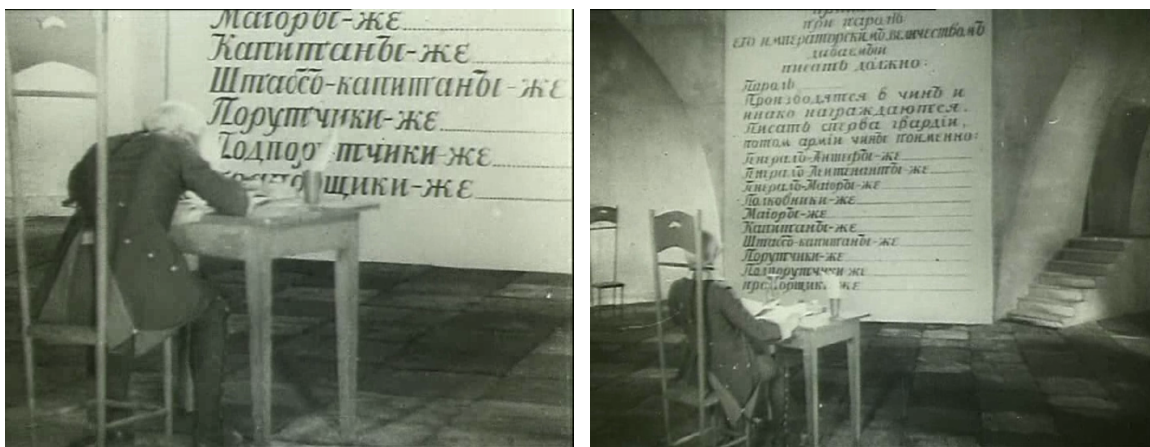 Маіоры-же
Капитаны-же
Штабсъ-капитаны-же
Порутчики-же
Подпорутчики-же
щики-же
при паролѣ
его императорскимъ величествомъ
писать должно:
Пароль
Производятся в чинъ и
инако награждаются.
Писать сперва гвардіи,
потомъ арміи чины поименно:
Генералъ-Аншефы-же
Генералъ-Лейтенанты-же
Генералъ-Маіоры-же
Полковники-же
Маіоры-же
Капитаны-же
Штабсъ-капитаны-же
Порутчики-же
Подпорутчики же
прапорщики-же